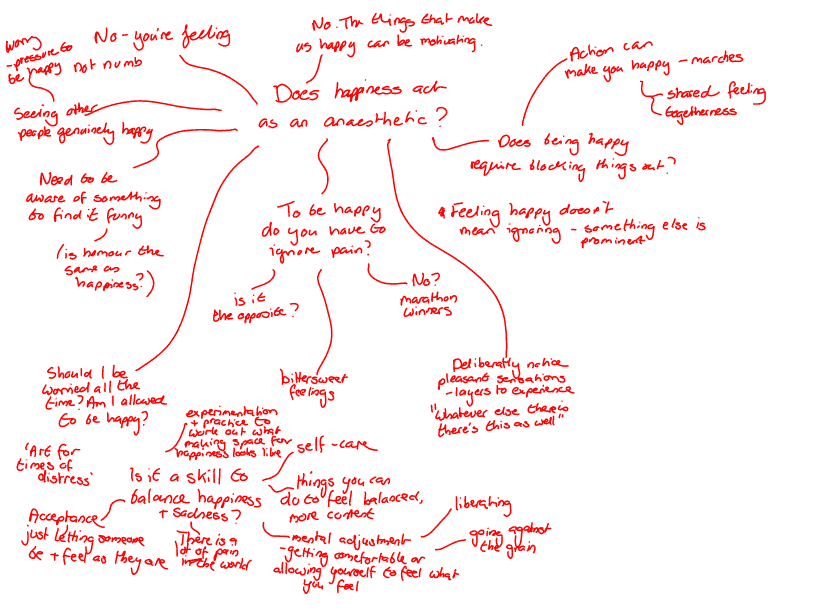 No. The things that make
us happy can be motivating.
No - you're feeling
not numb
Worry
- pressure to
be happy
Seeing other
people genuinely happy
Does happiness act
as an anaesthetic?
Action can
make you happy - marches
shared feeling
togetherness
Does being happy
require blocking things out?
Need to be
aware of something
to find it funny
(is humour the
same as
happiness?)
To be happy
do you have to
ignore pain?
* Feeling happy doesn't
mean ignoring - something else is
prominent
is it
the opposite?
No?
marathon
winners
Should I be
worried all the
time? Am I allowed
to be happy?
bittersweet
feelings
Deliberatly notice
pleasant sensations
- layers to experience
"whatever else there is
there's this as well"
'Art for
times of
distress'
experimentation
+ practice to
work out what
making space for
happiness looks like
Is it a skill to
balance happiness
+ sadness?
self-care
things you can
do to feel balanced,
more content
Acceptance
just letting someone
be + feel as they are
There is a
lot of pain
in the world
mental adjustment
- getting comfortable or
allowing yourself to feel what
you feel
liberating
going against
the grain